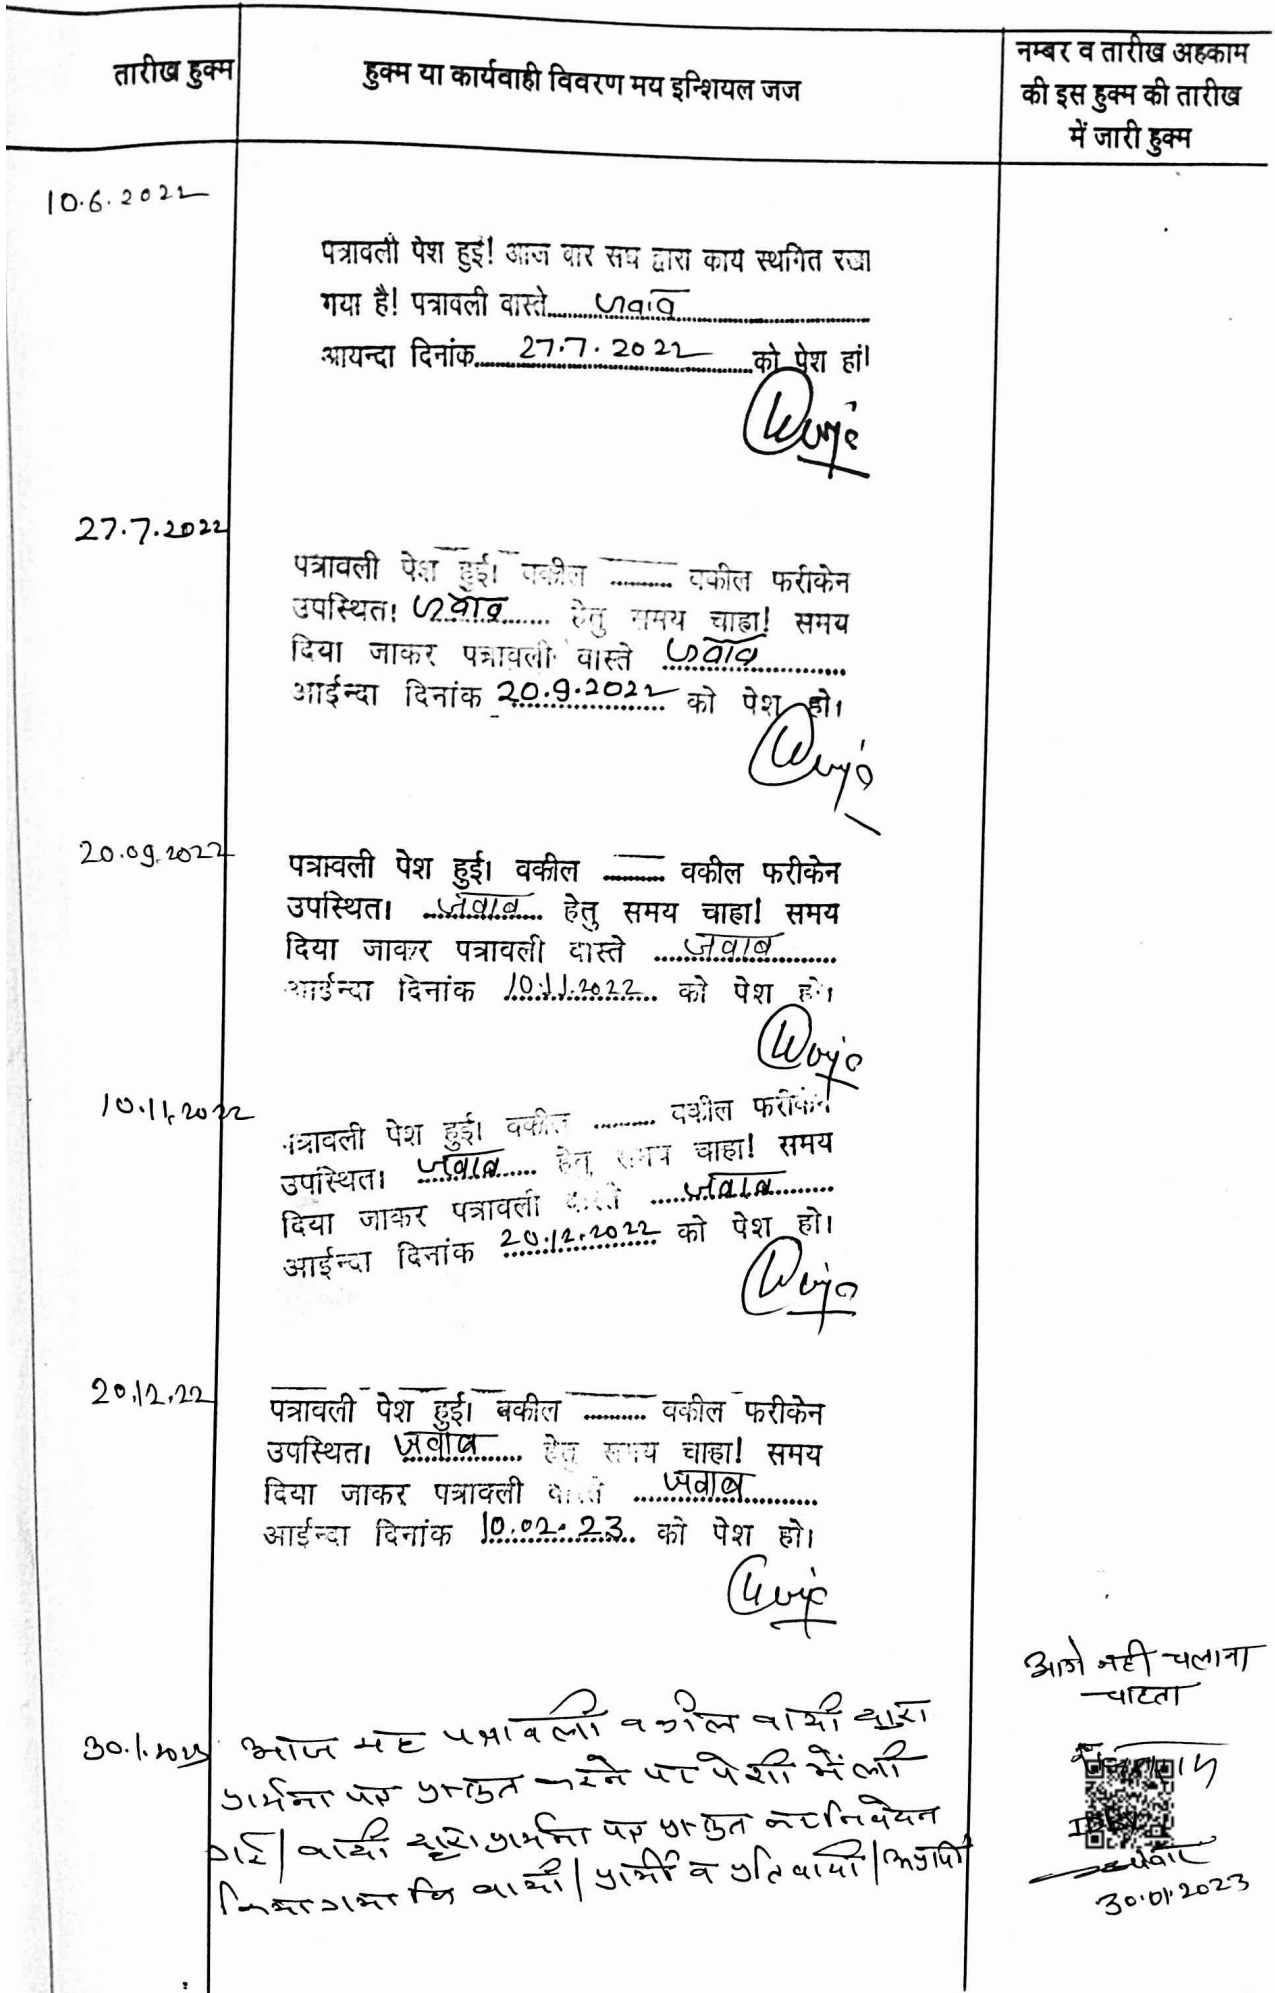 तारीख हुक्म
हुक्म या कार्यवाही विवरण मय इन्शियल जज
नम्बर व तारीख अहकाम
की इस हुक्म की तारीख
में जारी हुक्म
10.6.2022
पत्रावली पेश हुई! आज बार संघ द्वारा कार्य स्थगित रखा
गया है! पत्रावली वास्ते जवाब
आयन्दा दिनांक 27.7.2022 को पेश हो!
27.7.2022
पत्रावली पेश हुई। वकील ......... वकील फरीकेन
उपस्थित। जवाब हेतु समय चाहा! समय
दिया जाकर पत्रावली वास्ते जवाब
आईन्दा दिनांक 20.9.2022 को पेश हो।
20.09.2022
पत्रावली पेश हुई। वकील ......... वकील फरीकेन
उपस्थित। जवाब हेतु समय चाहा! समय
दिया जाकर पत्रावली वास्ते जवाब
आईन्दा दिनांक 10.11.2022 को पेश हो।
10.11.2022
पत्रावली पेश हुई। वकील ......... वकील फरीकेन
उपस्थित। जवाब हेतु समय चाहा! समय
दिया जाकर पत्रावली वास्ते जवाब
आईन्दा दिनांक 20.12.2022 को पेश हो।
20.12.22
पत्रावली पेश हुई। वकील ......... वकील फरीकेन
उपस्थित। जवाब हेतु समय चाहा! समय
दिया जाकर पत्रावली वास्ते जवाब
आईन्दा दिनांक 10.02.23 को पेश हो।
30.1.2023
आज यह पत्रावली वकील वादी द्वारा
प्रार्थना पत्र प्रस्तुत करने पर पेशी में ली
गई/ वादी द्वारा प्रार्थना पत्र प्रस्तुत कर निवेदन
किया गया कि वादी/प्रार्थी व प्रतिवादी/अप्रार्थी
आगे नही चलाना
चाहता
30.01.2023